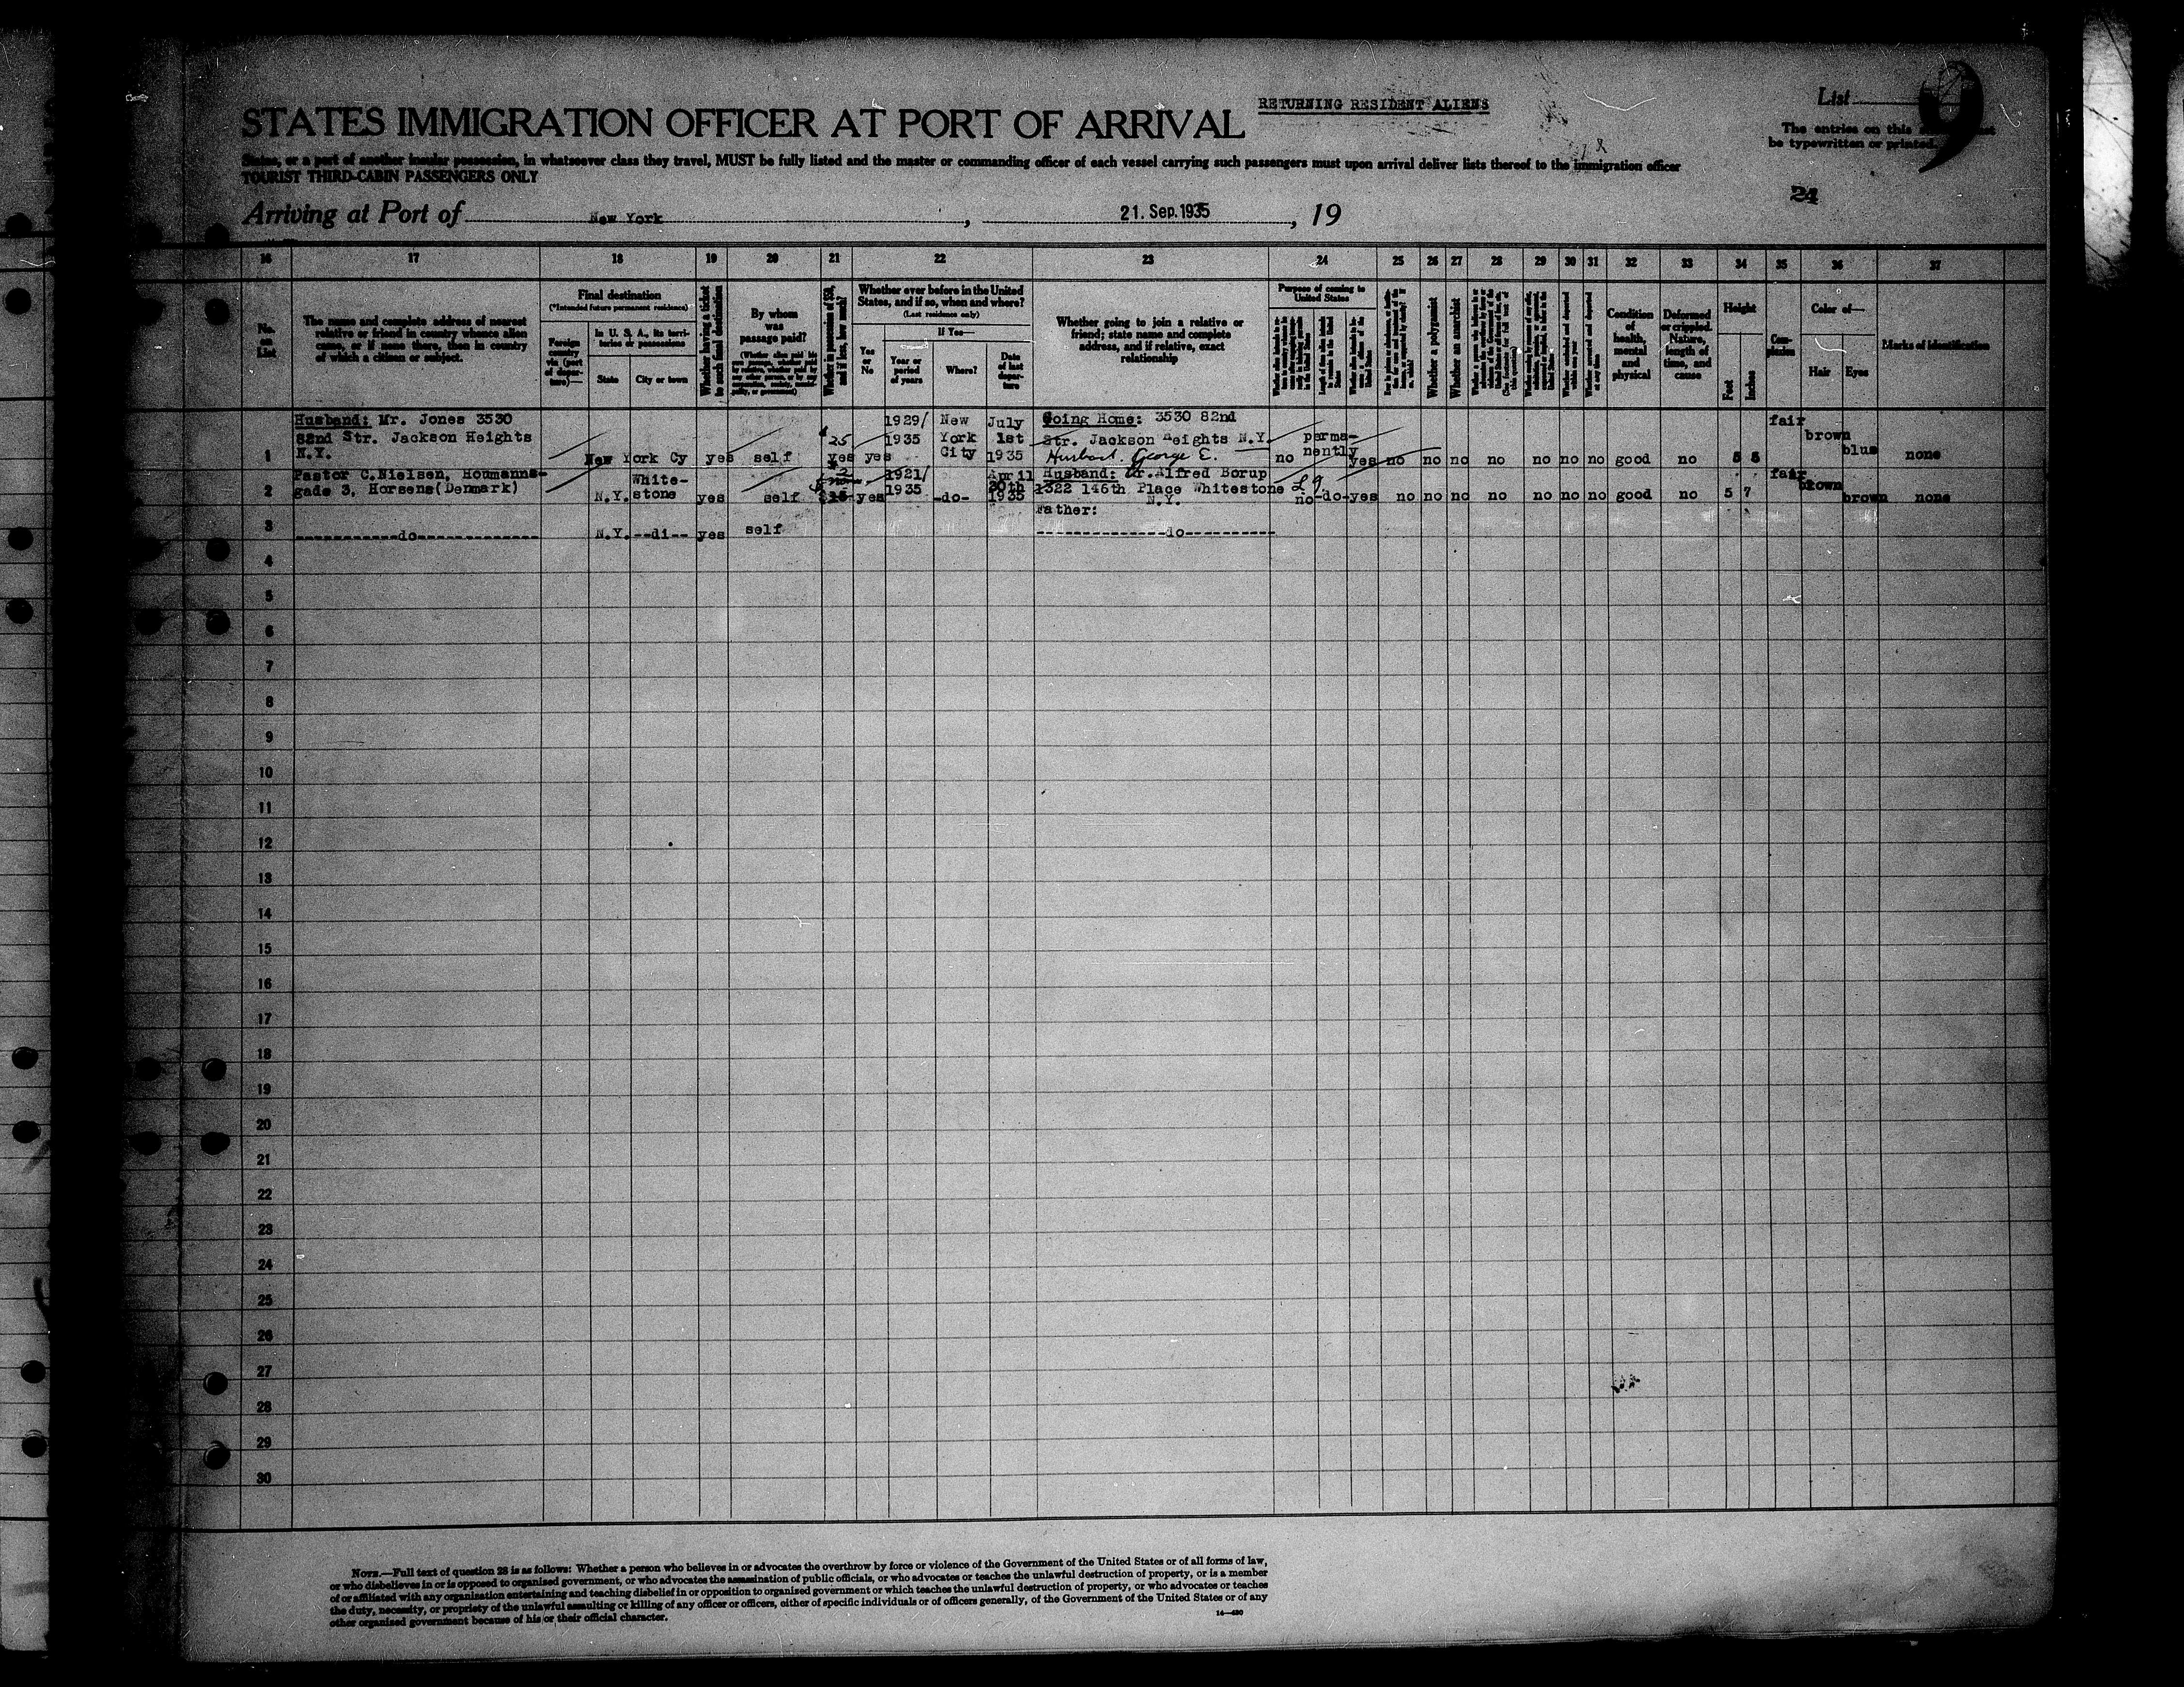 RETURNING RESIDENT ALIENS
List
9
STATES IMMIGRATION OFFICER AT PORT OF ARRIVAL
The entries on this
be typewritten or printed.
States, or a part of another insular possession, in whatsoever class they travel, MUST be fully listed and the master or commanding officer of each vessel carrying such passengers must upon arrival deliver lists thereof to the immigration officer
TOURIST THIRD-CABIN PASSENGERS ONLY
24
Arriving at Port of New York, 21. Sep. 1935, 19
16 17 18 19 20 21 22 23 24 25 26 27 28 29 30 31 32 33 34 35 36 37
No. on List
The name and complete address of nearest
relative or friend in country whence alien
came, or if none there, then in country
of which a citizen or subject.
Final destination
(*Intended future permanent residence)
Foreign country via (port of departure)—
In U. S. A., its territories or possessions
State
City or town
Whether having a ticket to such final destination
By whom was passage paid?
Whether in possession of $50, and if less, how much?
Whether ever before in the United
States, and if so, when and where?
(Last residence only)
Yes or No
If Yes—
Year or period of years
Where?
Date of last departure
Whether going to join a relative or
friend; state name and complete
address, and if relative, exact
relationship
Purpose of coming to United States
Whether a polygamist
Whether an anarchist
Condition of health, mental and physical
Deformed or crippled. Nature, length of time, and cause
Height
Feet
Inches
Complexion
Color of—
Hair
Eyes
Marks of identification
Husband: Mr. Jones 3530 1929/ New July Going Home: 3530 82nd fair
82nd Str. Jackson Heights 25 1935 York 1st Str. Jackson Heights N.Y. perma- brown
1 N.Y. New York Cy yes self yes yes City 1935 Husband. George E. no nently yes no no no no no no no good no 5 5 blue none
Pastor C.Nielsen, Houmanns- White- 1921/ April Husband: Dr. Alfred Borup fair
2 gade 3, Horsens(Denmark) N.Y. stone yes self yes 1935 -do- 30th 1935 1322 146th Place Whitestone no -do- yes no no no no no no no good no 5 7 brown brown none
N.Y.
Father:
3 ------------do------------- N.Y. --di-- yes self --------------do----------
4
5
6
7
8
9
10
11
12
13
14
15
16
17
18
19
20
21
22
23
24
25
26
27
28
29
30
NOTE.—Full text of question 28 is as follows: Whether a person who believes in or advocates the overthrow by force or violence of the Government of the United States or of all forms of law,
or who disbelieves in or is opposed to organized government, or who advocates the assassination of public officials, or who advocates or teaches the unlawful destruction of property, or is a member
of or affiliated with any organization entertaining and teaching disbelief in or opposition to organized government or which teaches the unlawful destruction of property, or who advocates or teaches
the duty, necessity, or propriety of the unlawful assaulting or killing of any officer or officers, either of specific individuals or of officers generally, of the Government of the United States or of any
other organized government because of his or their official character.
14—430